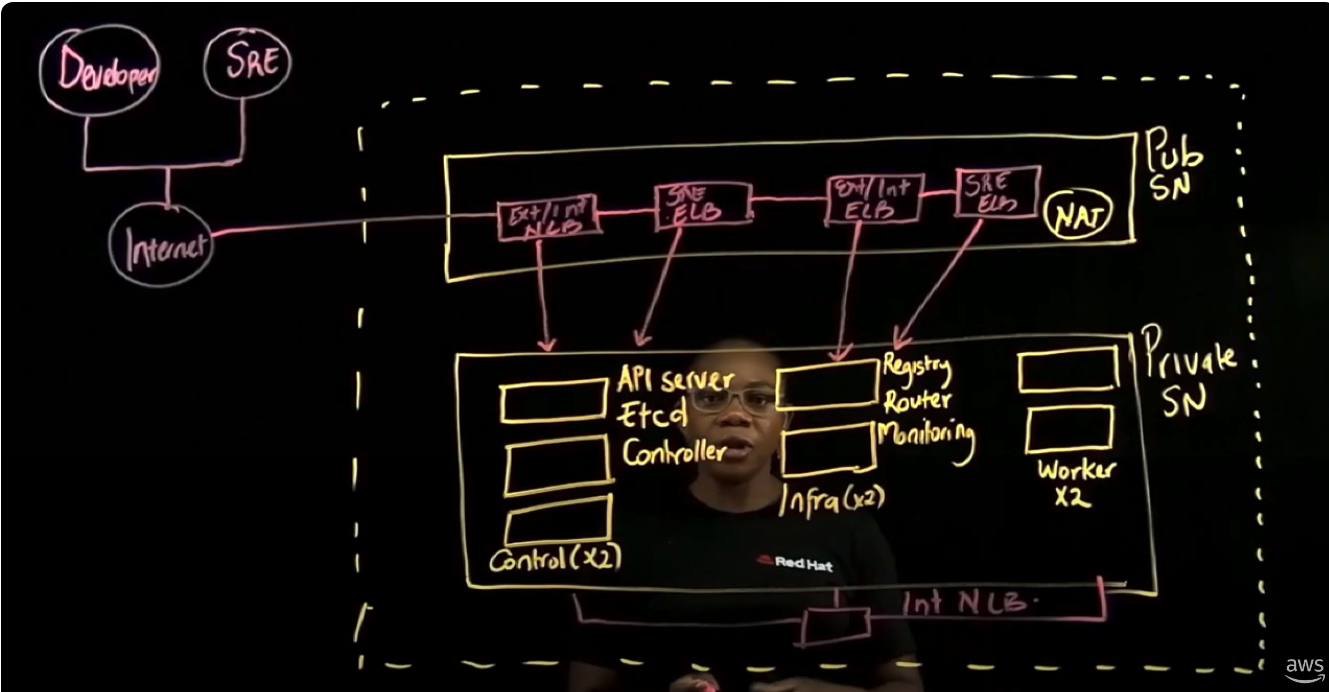 Developer
SRE
Internet
Pub
SN
Ext/Int
NLB
SRE
ELB
Ext/Int
ELB
SRE
ELB
NAT
Private
SN
API server
Etcd
Controller
Control (x2)
Registry
Router
Monitoring
Infra (x2)
Worker
x2
Red Hat
Int NLB.
aws